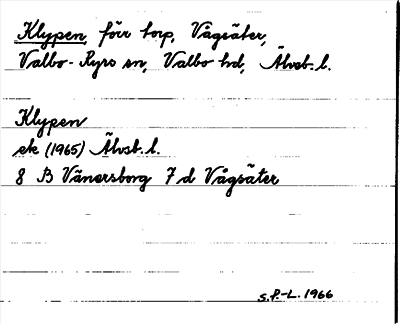 Klypen, förr torp, Vågsäter,
Valbo-Ryrs sn, Valbo hd, Älvsb. l.
Klypen
ek (1965) Älvsb. l.
8 B Vänersborg 7 d Vågsäter
S.P.-L. 1966